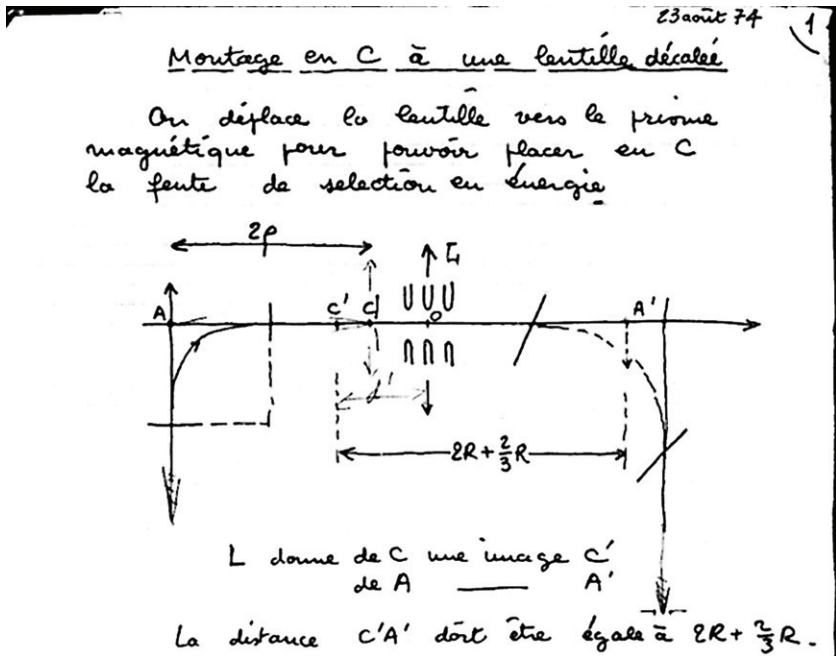 23 août 74
1
Montage en C à une lentille décalée
On déplace la lentille vers le prisme
magnétique pour pouvoir placer en C
la fente de selection en énergie
2ρ
A C' C O A'
d'
2R + 2/3 R
L donne de C une image C'
de A —— A'
La distance C'A' doit être égale à 2R + 2/3 R.